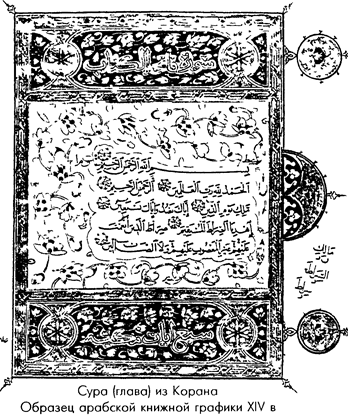 بسم الله الرحمن الرحيم
الحمد لله رب العالمين الرحمن الرحيم
ملك يوم الدين إياك نعبد وإياك نستعين
اهدنا الصراط المستقيم صراط الذين أنعمت
عليهم غير المغضوب عليهم ولا الضالين
Сура (глава) из Корана
Образец арабской книжной графики XIV в